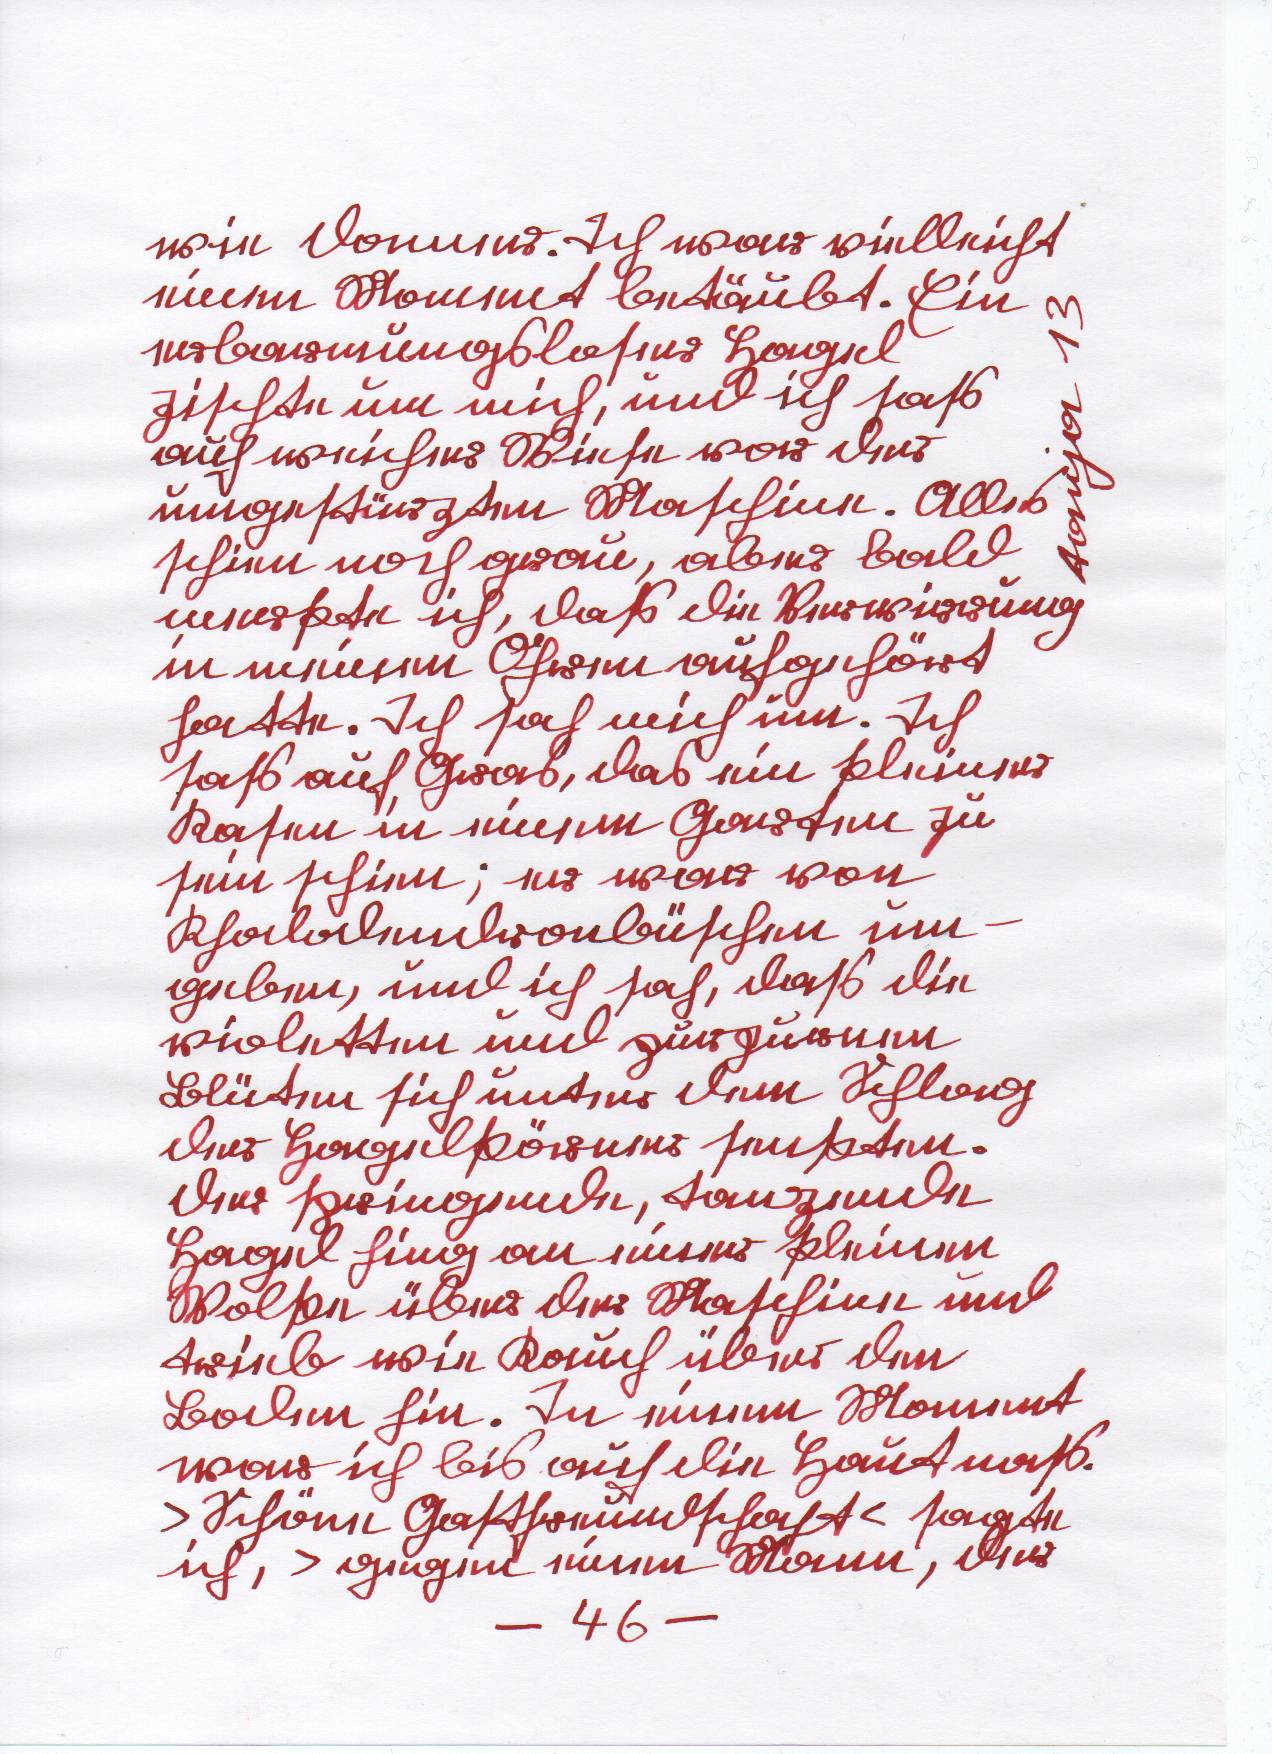 wie Donner. Ich war vielleicht
einen Moment betäubt. Ein
erbarmungsloser Hagel
zischte um mich, und ich saß
auf weicher Wiese vor der
umgestürzten Maschine. Alles
schien noch grau, aber bald
merkte ich, daß die Verwirrung
in meinen Ohren aufgehört
hatte. Ich sah mich um. Ich
saß auf Gras, das ein kleiner
Rasen in einem Garten zu
sein schien; er war von
Rhododendronbüschen um-
geben, und ich sah, daß die
violetten und purpurnen
Blüten sich unter dem Schlag
der Hagelkörner senkten.
Der springende, tanzende
Hagel hing an einer kleinen
Wolke über der Maschine und
trieb wie Rauch über den
Boden hin. In einem Moment
war ich bis auf die Haut naß.
>Schöne Gastfreundschaft< sagte
ich, >gegen einen Mann, der
— 46 —
Anja 13